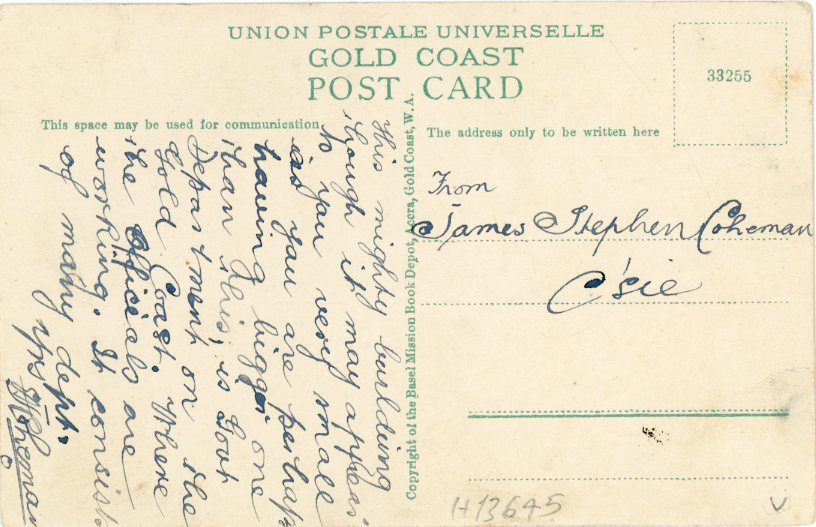 UNION POSTALE UNIVERSELLE
GOLD COAST
POST CARD
33255
This space may be used for communication
The address only to be written here
This mighty building
though it may appear
to you very small
as you are perhaps
having bigger one
than this, is Govt
Department on the
Gold Coast. Where
the Officials are
working. It consists
of many dept.
yrs
Coheman
Copyright of the Basel Mission Book Depot, Accra, Gold Coast, W. A.
From
James Stephen Coheman
C'sie
H13645
V